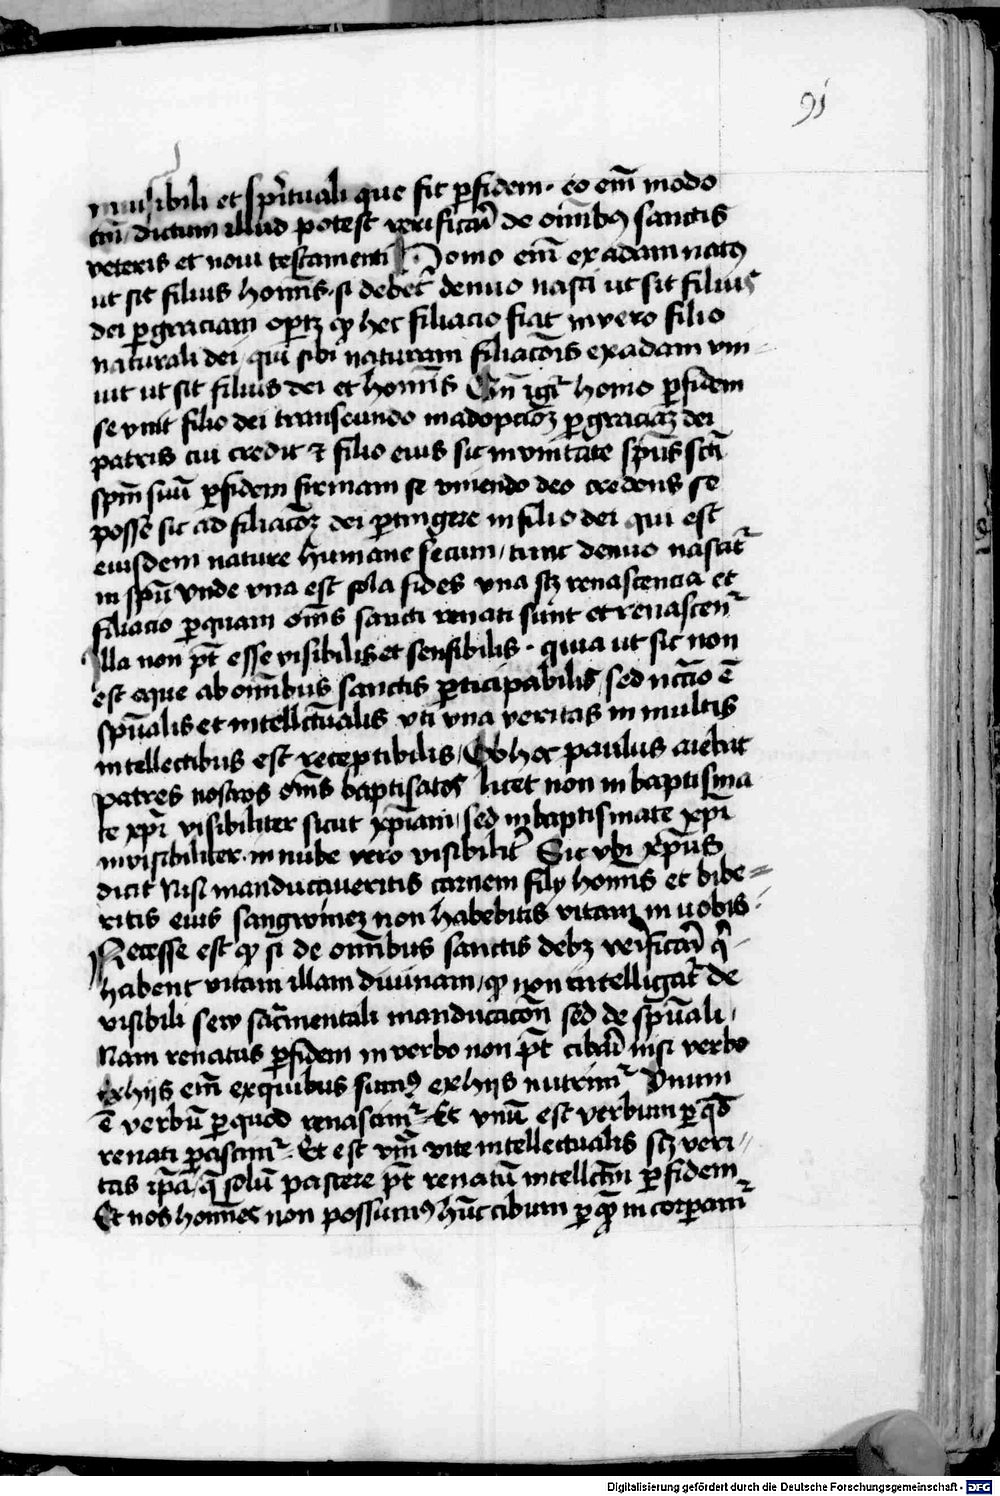 91
inuisibili et spūituali que fit ꝑfidem · eo em̄ modo
tm̄ dictum illud potest verificari de oīnibꝯ sanctis
veteris et noui testamenti Homo em̄ ex adam natꝯ
ut sit filius hoīnis · si debet̄ denuo nasci ut sit filius
dei ꝑ graciam oportꝫ ꝙ hec filiacio fiat in vero filio
naturali dei / qui sibi naturam filiacōis ex adam vni-
uit ut sit filius dei et hoīnis Cum igr̄ homo ꝑ fidem
se vnit filio dei transeundo in adopcioꝫ ꝑ graciaꝫ dei
patris cui credit ⁊ filio eius sic in vnitate spūs scī
spm̄ suū ꝑfidem firmam sc̄ vniendo deo credens se
posse sic ad filiacōeꝫ dei ꝑtingere in filio dei qui est
eiusdem nature humane secum / tunc denuo nascit̄
in spū vnde vna est sola fides vna scꝫ renascencia et
filiacio ꝑquam om̄s sancti renati sunt et renascent̄
Illa non pt̄ esse visibilis et sensibilis · quia ut sic non
est eque ab omībus sanctis ꝑticipabilis / sed ncc̄io ē
spūalis et intellc̄tualis vti vna veritas in multis
intellectibus est receptibilis / Ob hoc paulus aiebat
patres nostros om̄s baptisatos licet non in baptisma
te xp̄i visibiliter sicut xp̄iani / sed in baptismate xp̄i
inuisibiliter · in nube vero visibilit̄ Sic vbi xp̄us
dicit Nisi manducaueritis carnem filij hoīnis et bibe=
ritis eius sangwineꝫ non habebitis vitam in uobis ·
Necesse est ꝙ si de omībus sanctis debꝫ verificari q̄
habent vitam illam diuinam / ꝙ non intelligat̄ de
visibili sew sac̄mentali manducacōn sed de spūali /
Nam renatus ꝑfidem in verbo non pt̄ cibari nisi verbo
ex hijs em̄ ex quibus sumꝯ ex hijs nutrimr̄ Vnum
ē verbū ꝑ quod renascimr̄ · Et vnū est verbum ꝑ qd̄
renati pascimr̄ · Et est vm̄ vite intellectualis scꝫ veri-
tas ip̄a / q̄ solū pascere pt̄ renatū intellc̄tm ꝑ fidem
Et nos hoīnes non possumꝯ hūc cibum ꝑ quē in corꝑamr̄
Digitalisierung gefördert durch die Deutsche Forschungsgemeinschaft - DFG